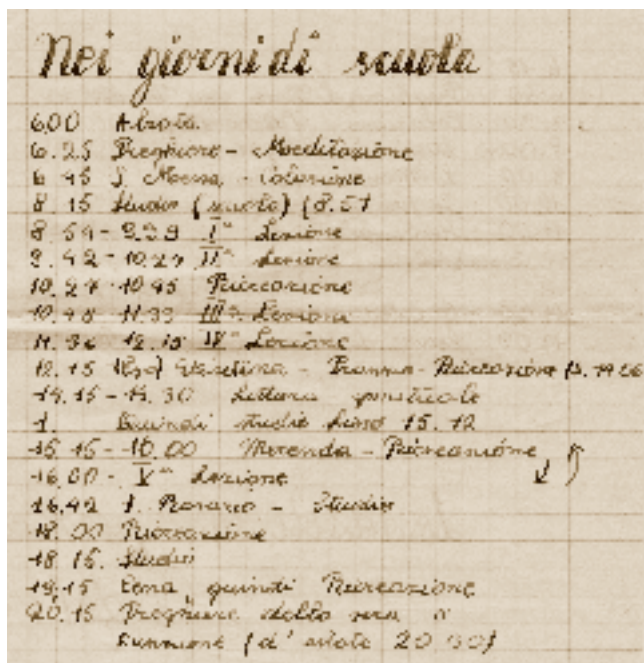 Nei giorni di scuola
6.00 Alzata
6.25 Preghiere - Meditazione
6.45 S. Messa - Colazione
8.15 Studio (scuola) (8.57
8.54 - 9.39 Iª Lezione
9.42 - 10.27 IIª Lezione
10.27 - 10.45 Ricreazione
10.48 - 11.33 IIIª Lezione
11.36 12.15 IVª Lezione
12.15 - Pranzo - Ricreazione
14.15 - 14.30 Lettura spirituale
Quindi studio fino 15.12
15.15 - 16.00 Merenda - Ricreazione
16.00 - Vª Lezione
16.42 S. Rosario - Studio
18.00 Ricreazione
18.15. Studio
19.15 Cena, quindi Ricreazione
20.15 Preghiere della sera e
(d'estate 20.30)